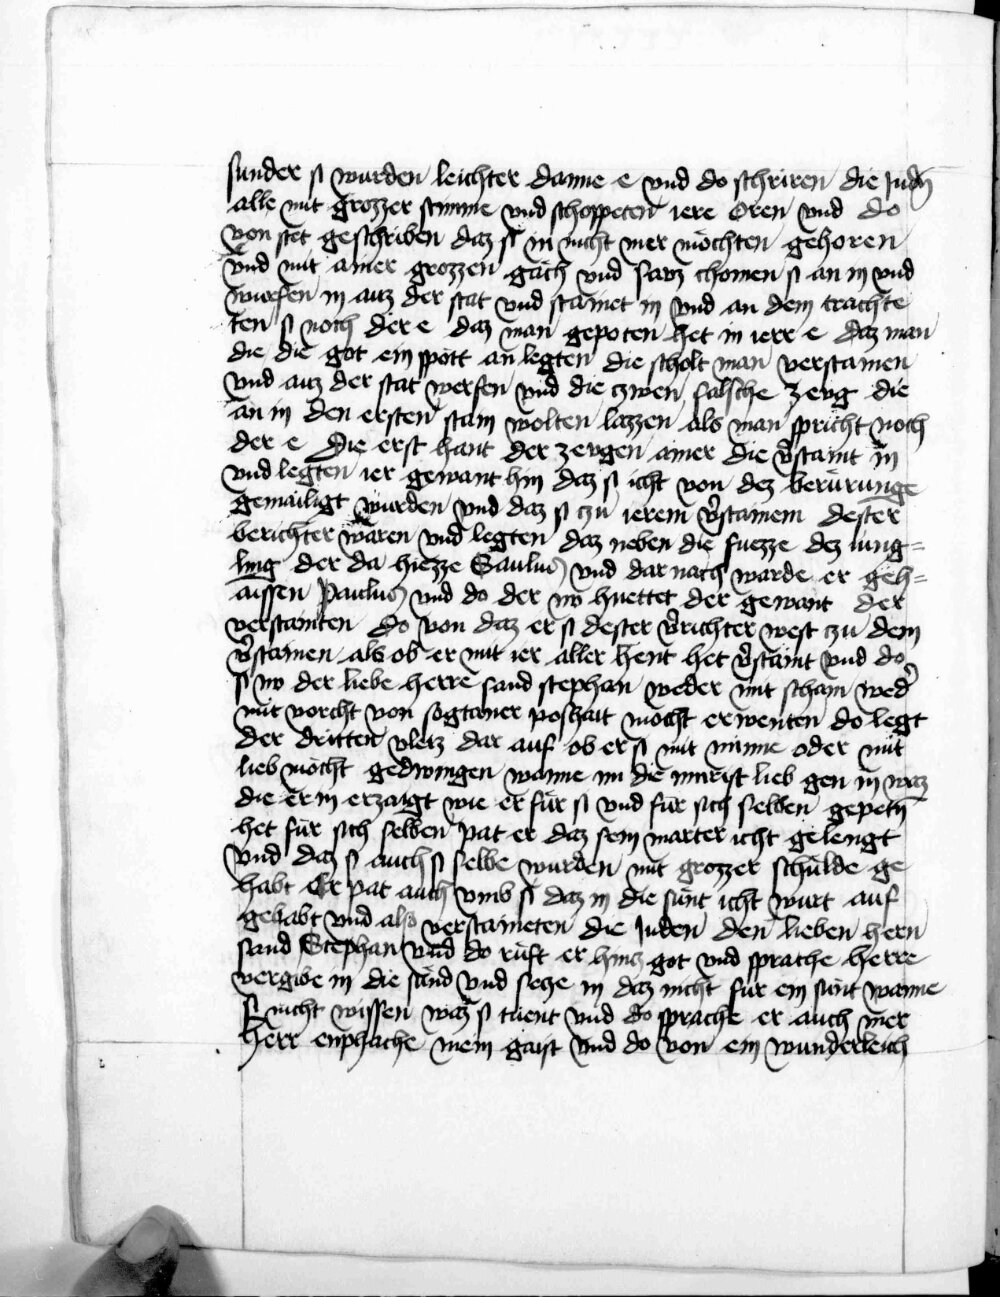 sunder si wurden leichter danne e vnd do schriren die Judn
alle mit grozzer stimme vnd schoppeten iere oren vnd do
von stet geschriben daz si in nicht mer mochten gehoren
vnd mit ainer grozzen gäch vnd saus chomen si an in vnd
wurfen in auz der stat vnd stainet in vnd an dem trachte
ten si noch der e daz man gepoten het in ierr e daz man
die die got ein spott an legten die scholt man verstainen
vnd auz der stat werfen vnd die czwen falsche zeug die
an in den ersten stain wolten lazzen als man spricht noch
der e Die erst hant der zeugen ainer die v̉staint in
vnd legten ier gewant hin daz si icht von dez berürunge
gemailigt wurden vnd daz si czu ierem v̉stainem dester
berichter wären vnd legten daz neben die fuezze dez iung-
ling der da hiezze Saulus vnd dar nach warde er geh-
aissen Paulus vnd do der no huettet der gewant der
verstainten do von daz er si dester v̉richter west czu dem
v̉stainen als ob er mit ier aller hent het v̉staint vnd do
si no der liebe herre sand stephan weder mit scham wed̉
mit vorcht von sogtaner poshait mocht erwenten do legt
der dritten vleiz dar auf ob er si mit minne oder mit
lieb mocht gedwingen wanne im die innrist lieb gen in waz
die er in erzaigt wie er für si vnd für sich selben gepetn
het für sich selben pat er daz sein marter icht gelengt
vnd daz si auch si selbe wurden mit grozzer schulde ge
habt Er pat auch vmb si daz in die sünt icht wurt auf
gehabt vnd also verstaineten die Juden den lieben hern
sand Stephan vnd do rüft er hincz got vnd sprache herre
vergibe in die sünd vnd secze in daz nicht für ein sünt wanne
si nicht wissen waz si tuent vnd do sprache er auch mer
herr enphache mein gaist vnd do von ein wunderleich